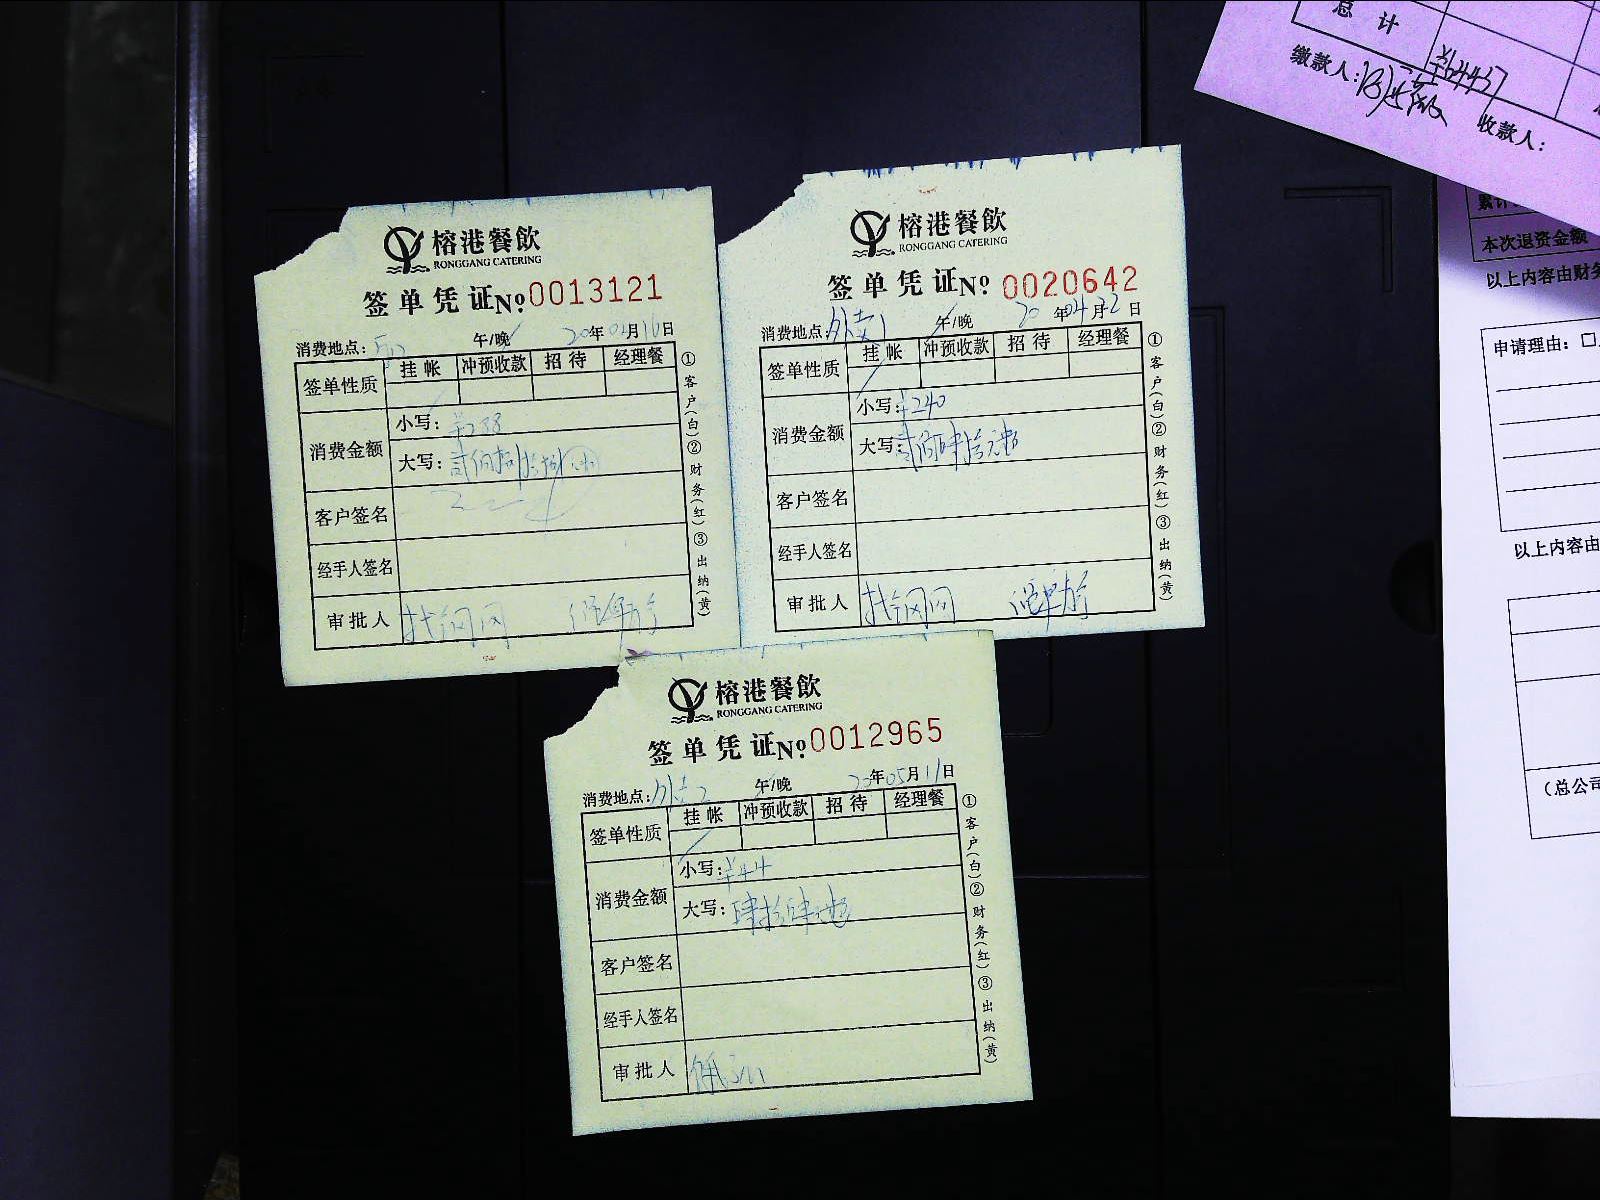 榕港餐飲
RONGGANG CATERING
签单凭证№0013121
消费地点: 午/晚 20年04月16日
签单性质 挂帐 冲预收款 招待 经理餐
消费金额 小写:¥288
大写:贰佰捌拾捌
客户签名
经手人签名
审批人 找钢网
①客户(白)②财务(红)③出纳(黄)
榕港餐飲
RONGGANG CATERING
签单凭证№0020642
消费地点:外卖1 午/晚 20年04月22日
签单性质 挂帐 冲预收款 招待 经理餐
消费金额 小写:¥240
大写:贰佰肆拾元整
客户签名
经手人签名
审批人 找钢网
①客户(白)②财务(红)③出纳(黄)
榕港餐飲
RONGGANG CATERING
签单凭证№0012965
消费地点:外卖2 午/晚 20年05月11日
签单性质 挂帐 冲预收款 招待 经理餐
消费金额 小写:¥44
大写:肆拾肆元整
客户签名
经手人签名
审批人
①客户(白)②财务(红)③出纳(黄)
总计 ¥64437
缴款人: 收款人:
累计
本次退资金额
以上内容由财务
申请理由:□
以上内容由
(总公司